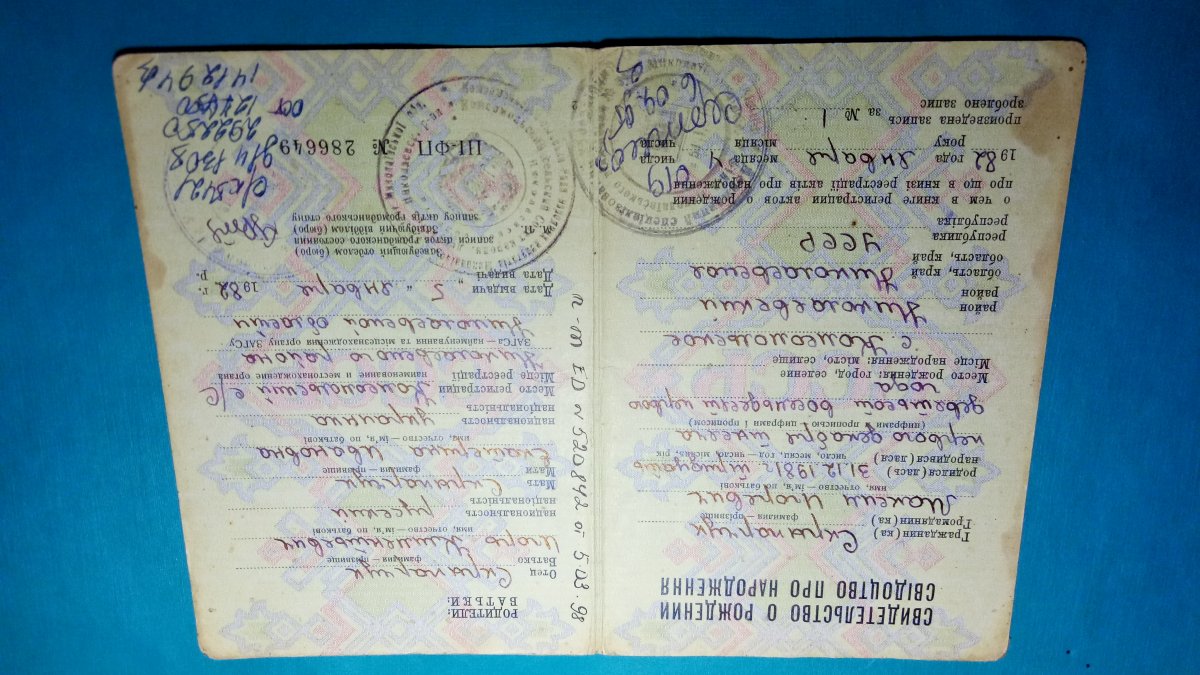 СВИДЕТЕЛЬСТВО О РОЖДЕНИИ
СВІДОЦТВО ПРО НАРОДЖЕННЯ
Гражданин(ка) Скрыпарчук
Громадянин(ка) фамилия — прізвище
Максим Игоревич
имя, отчество — ім'я, по батькові
родился (лась) 31.12.1981г. тридцать
народився (лася) число, месяц, год — число, місяць, рік
первого декабря тысяча
(цифрами и прописью) (цифрами і прописом)
девятьсот восемьдесят первого
года
Место рождения: город, селение
Місце народження: місто, селище
с.
район Николаевский
район
область, край Николаевское
область, край
республика УССР
республіка
о чем в книге регистрации актов о рождении
про що в книзі реєстрації актів про народження
1982 года января месяца 4 числа
року місяця числа
произведена запись за № 1
зроблено запис
РОДИТЕЛИ:
БАТЬКИ:
Отец Скрыпарчук
Батько фамилия — прізвище
Игорь
имя, отчество — ім'я, по батькові
национальность русский
національність
Мать Скрыпарчук
Мати фамилия — прізвище
Екатерина Ивановна
имя, отчество — ім'я, по батькові
национальность украинка
національність
Место регистрации
Місце реєстрації наименование и местонахождение органа
Николаевского района
ЗАГСа — найменування та місцезнаходження органу ЗАГСу
Николаевской области
Дата выдачи „ 5 " января 1982 г.
Дата видачі р.
М. П.
Заведующий отделом (бюро)
записи актов гражданского состояния
Завідуючий відділом (бюро)
запису актів громадянського стану
III-ФП № 286649
п-т ЕD N 520842 от 5.03.98